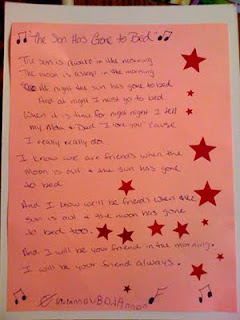 "The Sun Has Gone to Bed"
The sun is awake in the morning
The moon is asleep in the morning
At night the sun has gone to bed
And at night I must go to bed
When it is time for night night I tell
my Mom + Dad "I love you" 'cause
I really really do.
I know we are friends when the
moon is out + the sun has gone
to bed
And I know we'll be friends when the
sun is out + the moon has gone
to bed too.
And I will be your friend in the morning.
I will be your friend always.